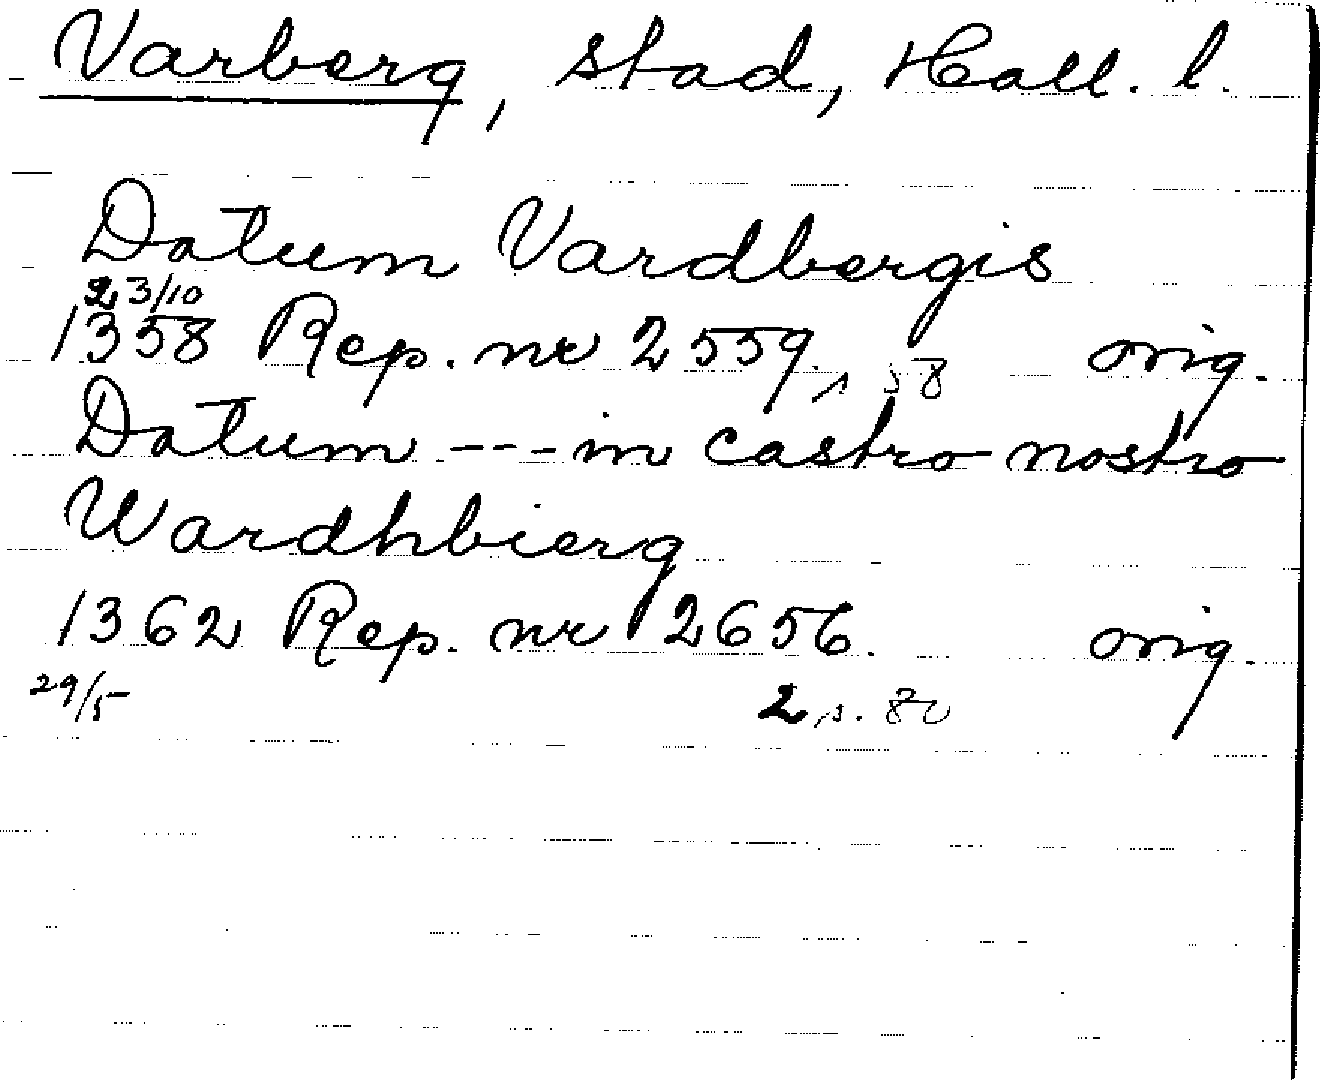 Varberg, stad, Hall. l.
Datum Vardbergis
23/10
1358 Rep. nr 2559, s 58 orig.
Datum --- in castro nostro
Wardhbierg
1362 Rep. nr 2656. orig.
29/5 2 s. 80